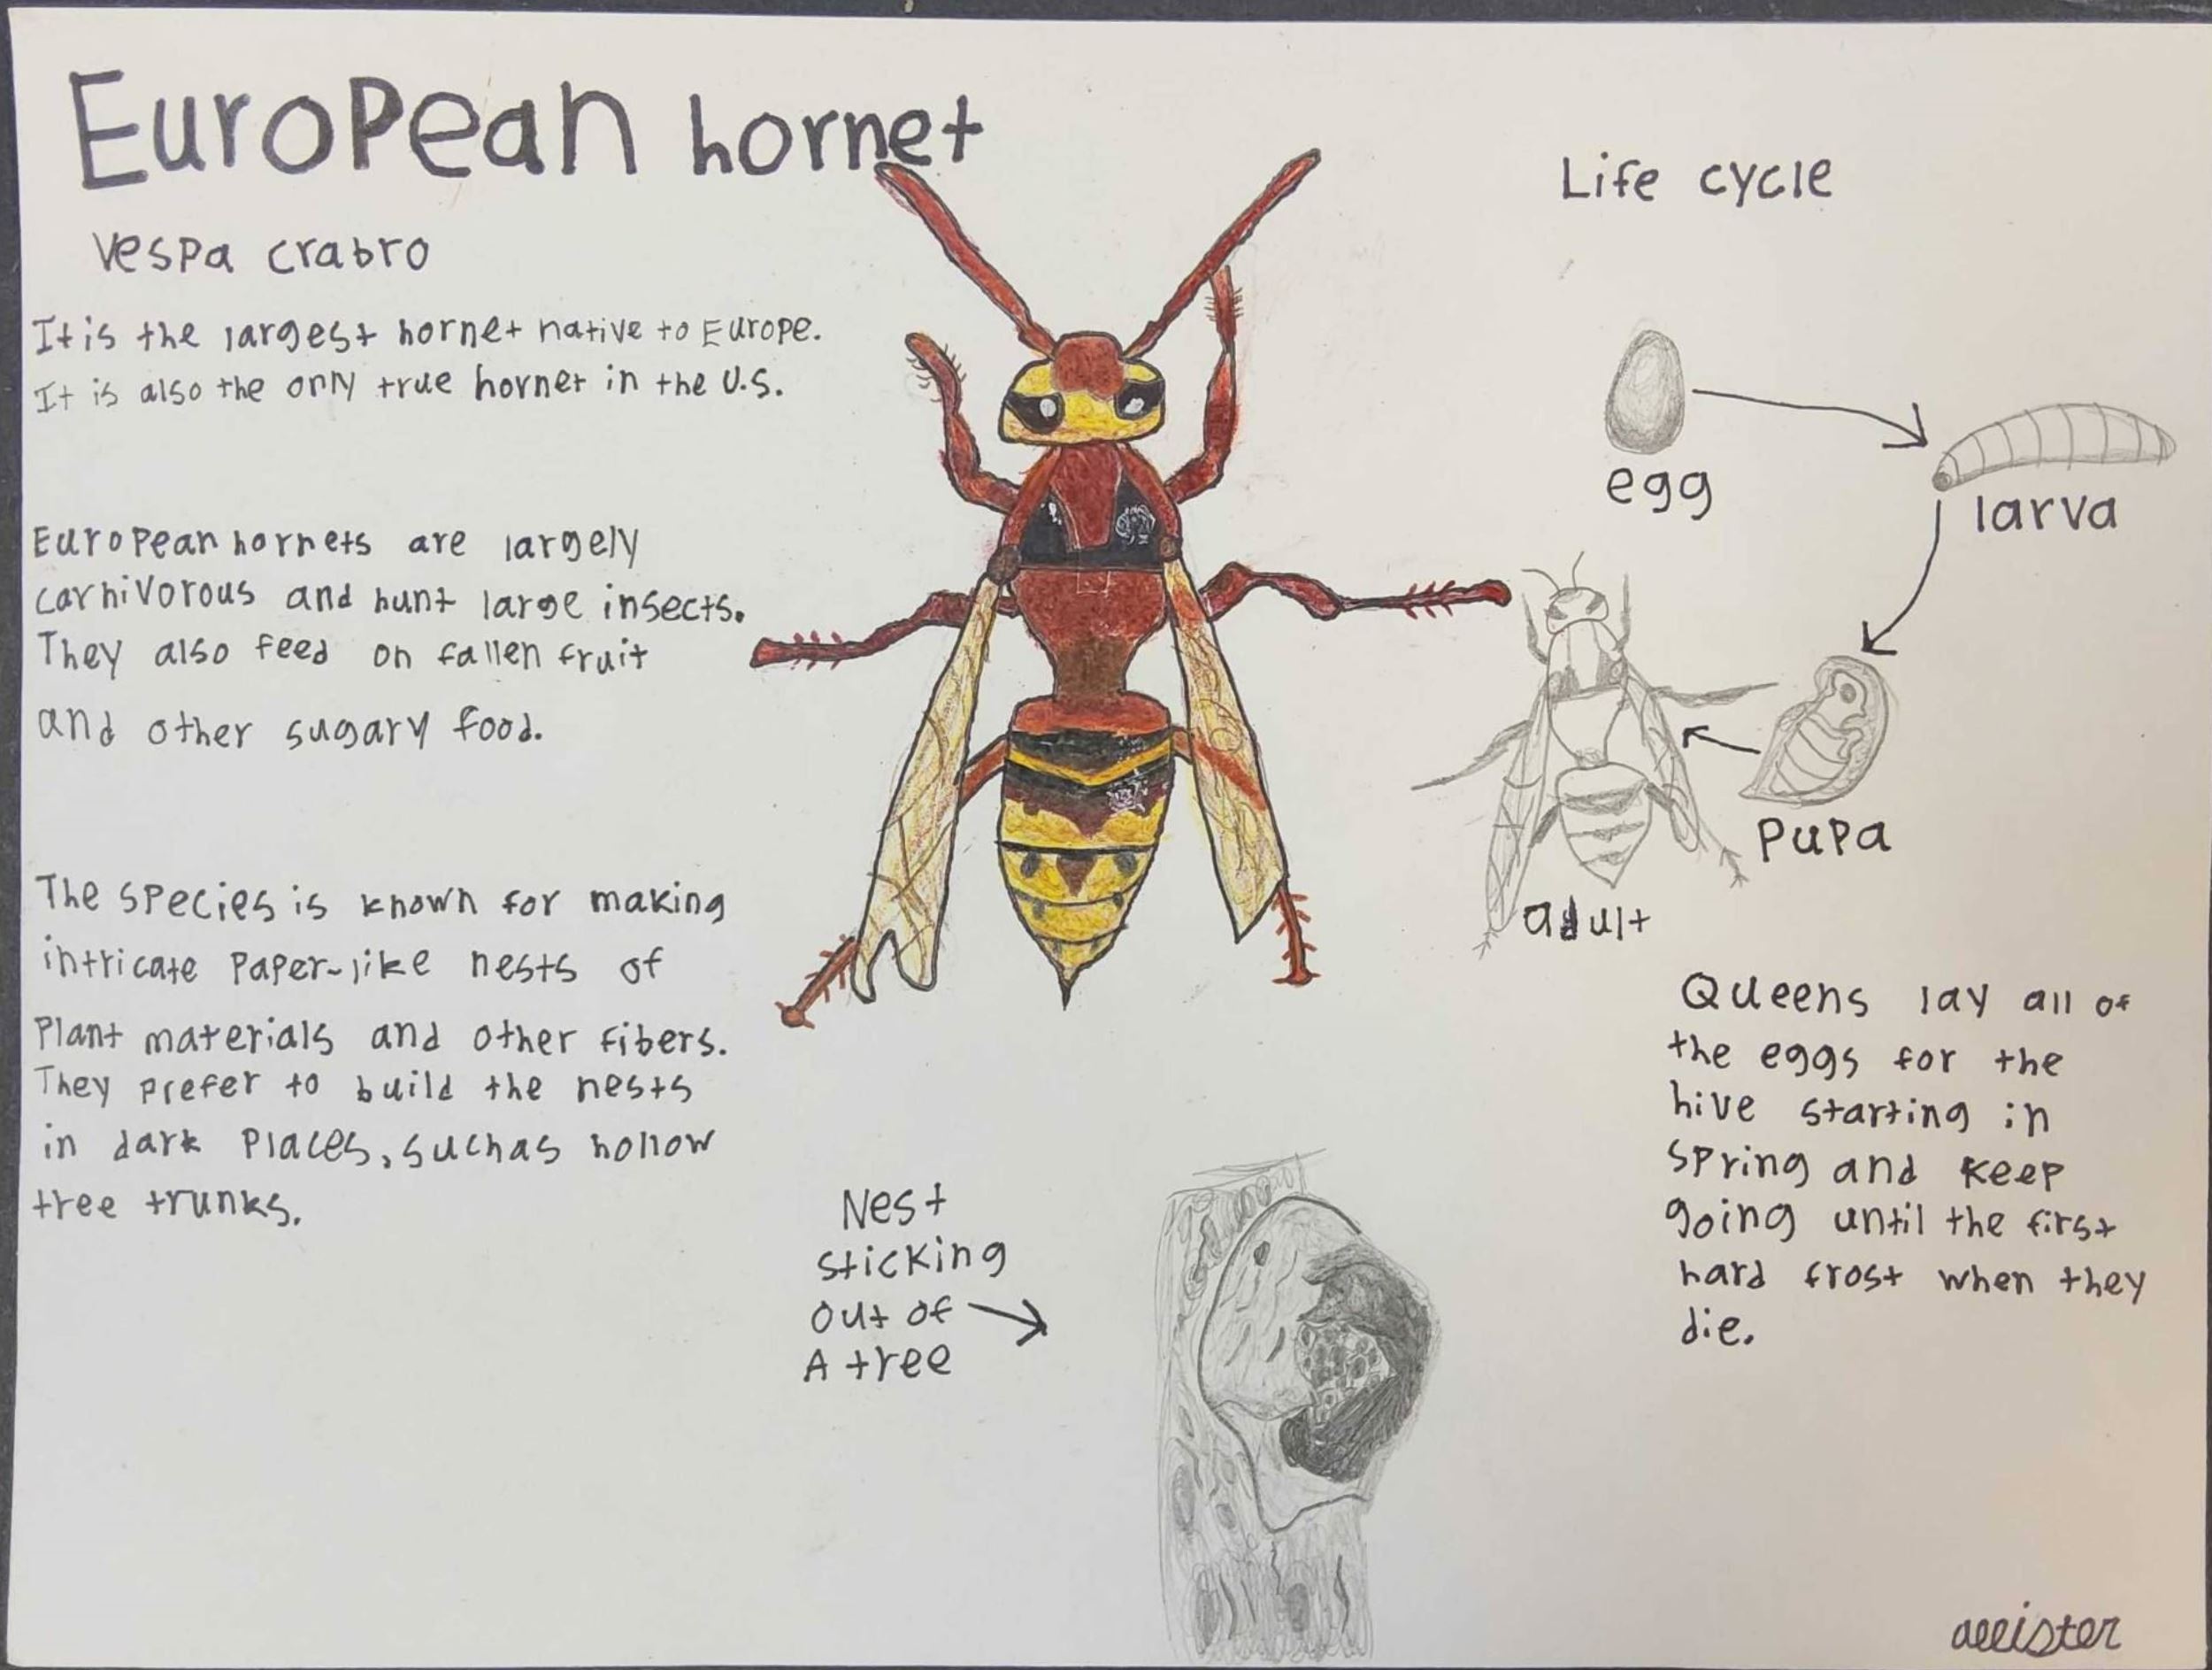 European hornet
Vespa crabro
It is the largest hornet native to Europe.
It is also the only true hornet in the U.S.
European hornets are largely
carnivorous and hunt large insects.
They also feed on fallen fruit
and other sugary food.
The species is known for making
intricate paper-like nests of
plant materials and other fibers.
They prefer to build the nests
in dark places, such as hollow
tree trunks.
Nest
sticking
out of
A tree
Life cycle
egg
larva
pupa
adult
Queens lay all of
the eggs for the
hive starting in
spring and keep
going until the first
hard frost when they
die.
allister